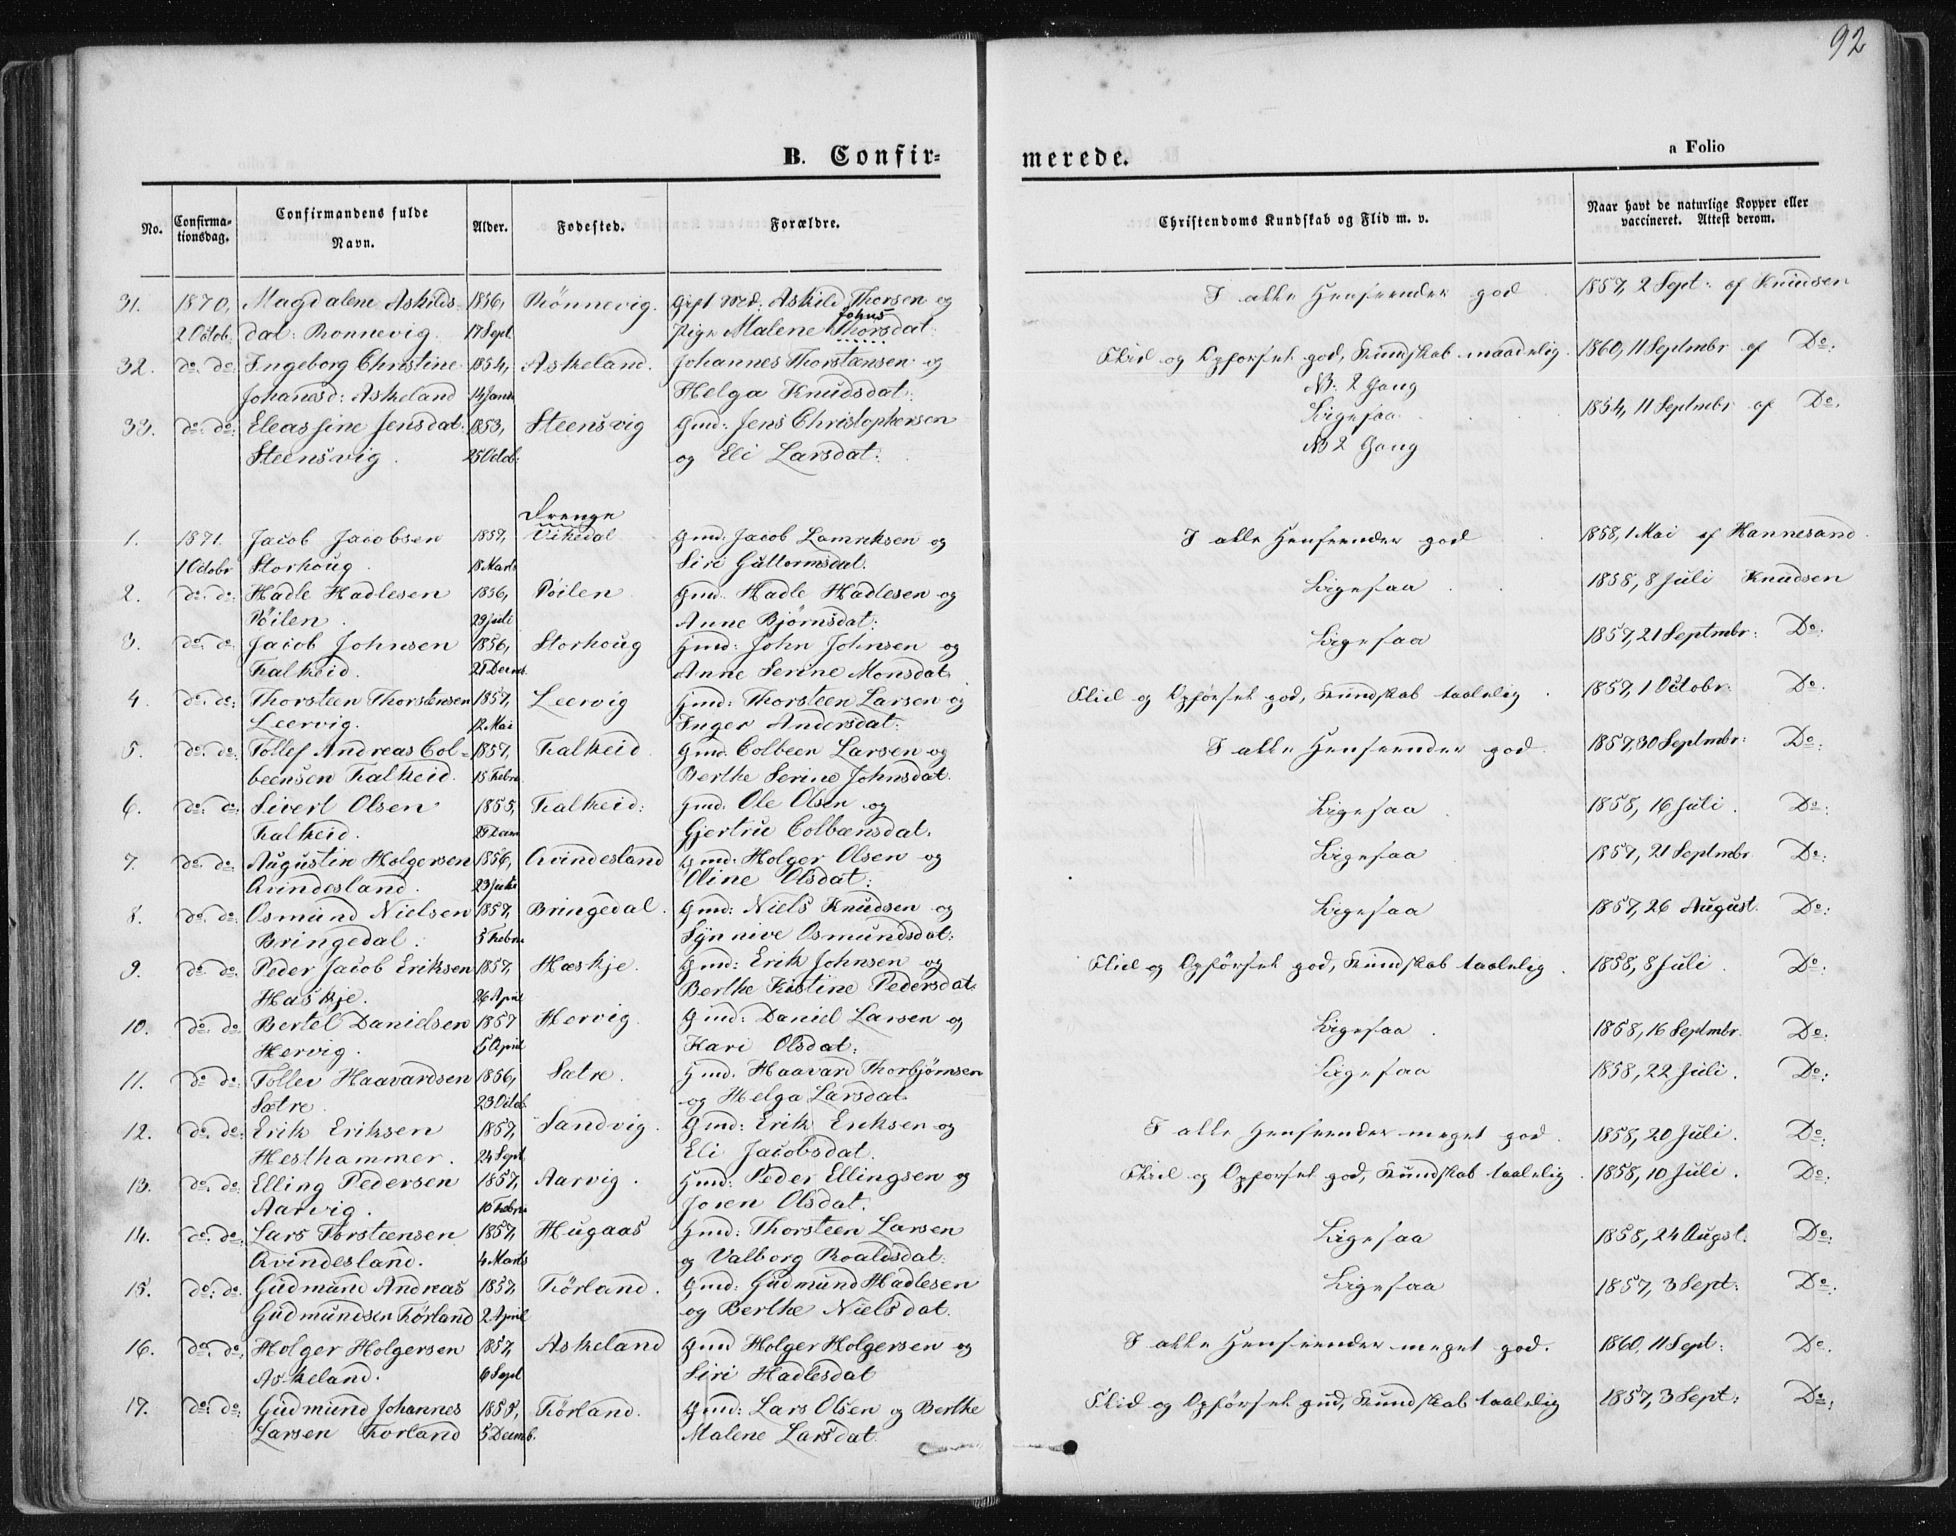 92
B. Confirmerede.
a Folio
No. | Confirmationsdag. | Confirmandens fulde Navn. | Alder. | Fødested. | Forældre. | Christendoms Kundskab og Flid m. v. | Naar havt de naturlige Kopper eller vaccineret. Attest derom.
31. 1870, Magdalene Askilds- 1856, Rönnevig. Gift Md: Askild Thorsen og I alle Henseender god 1857, 2 Sept: af Knudsen
2 Octob dat: Ronnevig. 17 Sept Pige Malene Johns Thorsdat:
32. do. do: Ingeborg Christine 1854, Askeland. Johannes Thorstensen og Flid og Opførsel god, Kundskab maadelig 1860, 11 Septmbr af Do:
Johanesd: Askeland 14 Janu Helga Knudsdat: NB: 2 Gang
33. do. do: Eleas sine Jensdat. 1853, Steensvig Gmd: Jens Christophersen Ligesaa 1854, 11 Septmbr af Do.
Steensvig. 25 Octob: og Eli Larsdat: NB 2 Gang
Drenge
1. 1871. Jacob Jacobsen 1857, Vikedal Gmd: Jacob Lamriksen og I alle Henseender god 1858, 1 Mai af Hannesand.
1 Octobr Storhoug. 18 Marts Siri Guttormsdat.
2. do. do: Hadle Hadlesen 1856, Röilen Gmd. Hadle Hadlesen og Ligesaa 1858, 8 Juli Knudsen
Röilen. 29 Juli Anne Bjørnsdat:
3. do. do: Jacob Johnsen 1856, Storhoug Gmd: John Johnsen og Ligesaa 1857, 21 Septmbr: Do:
Falkeid. 21 Decmb. Anne Serine Monsdat.
4. do. do: Thorsteen Thorstensen 1857, Leervig Gmd: Thorsteen Larsen og Flid og Opførsel god, Kundskab taalelig. 1857, 1 Octobr: Do.
Leervig. 12 Mai Inger Andersdat:
5. do. do: Tollef Andreas Col- 1857, Falkeid Gmd. Colbeen Larsen og I alle Henseender god. 1857, 30 Septmbr: Do:
beensen Falkeid. 15 Febru Berthe Serine Johnsdat.
6. do. do: Sivert Olsen 1855, Falkeid: Gmd: Ole Olsen og Ligesaa 1858, 16 Juli. Do:
Falkeid. Gjertru Colbænsdat.
7. do. do: Augustin Holgersen 1856, Qvindesland Gmd: Holger Olsen og Ligesaa 1857, 21 Septmbr. Do:
Qvindesland. Oline Olsdat:
8. do. do: Osmund Nielsen 1857, Bringedal. Gmd: Niels Knudsen og Ligesaa 1857, 26 August. Do:
Bringedal. 5 Febru Synnive Osmundsdat:
9. do. do. Peder Jacob Eriksen 1857, Hæskje. Gmd: Erik Johnsen og Flid og Opførsel god, Kundskab taalelig. 1858, 8 Juli. Do:
Haskje. 26 April Berthe Kistine Pedersdat.
10. do. do. Bertel Danielsen 1857 Hervig. Gmd: Daniel Larsen og Ligesaa. 1858, 16 Septmbr. Do:
Hervig. 5 April Kari Olsdat:
11. do do: Tollev Haavardsen 1856, Sætre. Gmd. Haavard Thorbjørnsen Ligesaa 1858, 22 Juli. Do:
Sætre. 23 Octob. og Helga Larsdat.
12. do. do: Erik Eriksen 1857, Sandvig. Gmd: Erik Eriksen og I alle Henseender meget god. 1858, 20 Juli. Do:
Hesthammer. 24 Sept Eli Jacobsdat.
13. do. do: Elling Pedersen 1857, Aarvig. Gmd: Peder Ellingsen og Flid og Opførsel god, Kundskab taalelig. 1858, 10 Juli. Do:
Aarvig. 10 Febru Joren Olsdat.
14. do. do: Lars Torsteensen 1857, Hugaas Gmd: Thorsteen Larsen Ligesaa 1858, 24 Augst. Do:
Qvindesland. 4 Marts og Valborg Roaldsdat:
15. do: do. Gudmund Andreas 1857, Förland. Gmd: Gudmund Hadlesen Ligesaa 1857, 3 Sept: Do:
Gudmundsen Förland 2 April og Berthe Nielsdat.
16. do. do. Holger Holgersen 1857, Askeland Gmd Holger Holgersen og I alle Henseender meget god. 1860, 11 Sept: Do.
Askeland. 6 Sept Siri Hadlesdat
17. do: do: Gudmund Johannes 1855, Förland. Gmd: Lars Olsen og Berthe Flid og Opførsel god, Kundskab taalelig 1857, 3 Sept: Do:
Larsen Forland 5 Decmb. Malene Larsdat.